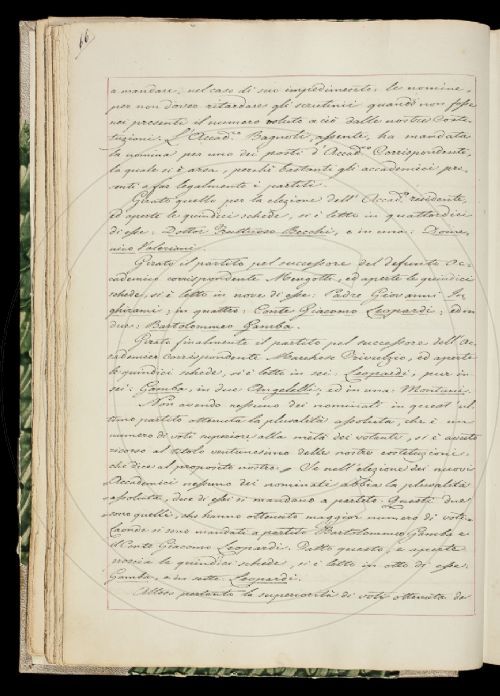 66
a mandare, nel caso di suo impedimento, le nomine,
per non dover ritardare gli scrutinii quando non fosse
noi presente il numero voluto a ciò dalle nostre Costi-
tuzioni. L'Accad.co Bagnoli, assente, ha mandata
la nomina per uno dei posti d'Accad.co Corrispondente,
la quale si è arsa, perchè bastanti gli accademici pre-
senti a far legalmente i partiti.
Girato quello per la elezione dell'Accad.co residente,
ed aperte le quindici schede, si è letto in quattordici
di esse: Dottor Fruttuoso Becchi, e in una: Dome-
nico Valeriani.
Girato il partito pel successore del defunto Ac-
cademico corrispondente Mengotti, ed aperte le quindici
schede, si è letto in nove di esse: Padre Giovanni In-
ghirami; in quattro: Conte Giacomo Leopardi; ed in
due: Bartolommeo Gamba.
Girato finalmente il partito pel successore dell'Ac-
cademico corrispondente Marchese Trivulzio, ed aperte
le quindici schede, si è letto in sei: Leopardi, pure in
sei: Gamba, in due Angelelli, ed in una: Montani.
Non avendo nessuno dei nominati in quest'ul-
timo partito ottenuta la pluralità assoluta, che è un
numero di voti superiore alla metà dei votanti, si è avuto
ricorso al titolo ventunesimo delle nostre costituzioni,
che dice al proposito nostro: Se nell'elezione dei nuovi
Accademici nessuno dei nominati abbia la pluralità
assoluta, due di essi si mandano a partito. Questi due
sono quelli, che hanno ottenuto maggior numero di voti.
Laonde si sono mandati a partito Bartolommeo Gamba e
il Conte Giacomo Leopardi. Dopo questo, e aperte
le quindici schede, si è letto in otto di esse:
Gamba, e in sette: Leopardi.
Atteso pertanto la superiorità di voti ottenuta da